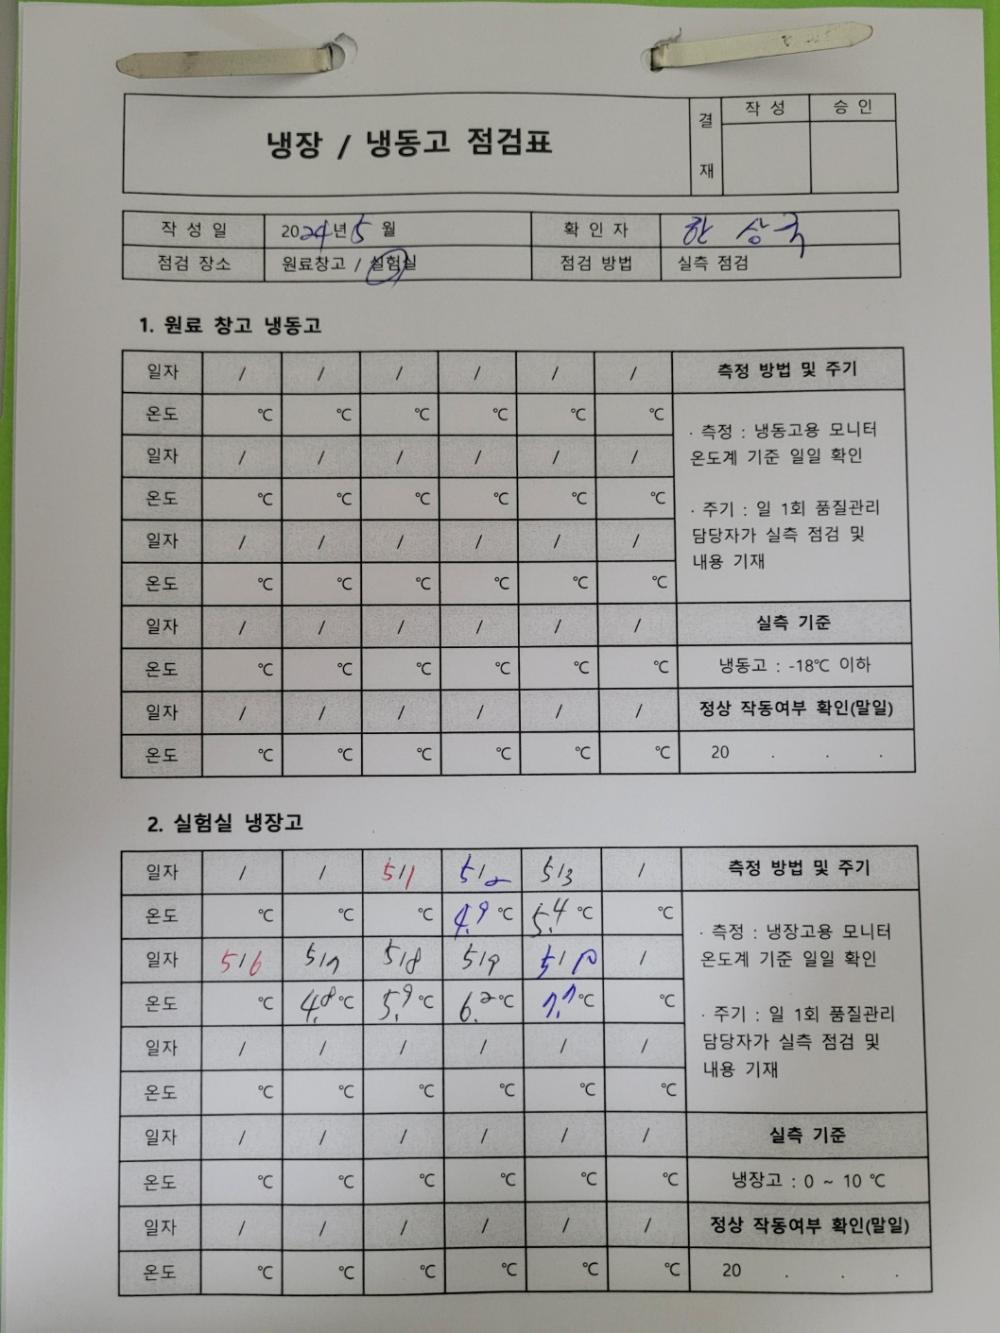 냉장 / 냉동고 점검표
결 재
작 성
승 인
작 성 일
2024년 5 월
확 인 자
한 상 국
점검 장소
원료창고 / 실험실
점검 방법
실측 점검
1. 원료 창고 냉동고
일자 / / / / / / 측정 방법 및 주기
온도 ℃ ℃ ℃ ℃ ℃ ℃
· 측정 : 냉동고용 모니터
온도계 기준 일일 확인
일자 / / / / / /
온도 ℃ ℃ ℃ ℃ ℃ ℃
· 주기 : 일 1회 품질관리
담당자가 실측 점검 및
내용 기재
일자 / / / / / /
온도 ℃ ℃ ℃ ℃ ℃ ℃
일자 / / / / / / 실측 기준
온도 ℃ ℃ ℃ ℃ ℃ ℃ 냉동고 : -18℃ 이하
일자 / / / / / / 정상 작동여부 확인(말일)
온도 ℃ ℃ ℃ ℃ ℃ ℃ 20 . . .
2. 실험실 냉장고
일자 / / 5/1 5/2 5/3 / 측정 방법 및 주기
온도 ℃ ℃ ℃ 4.9 ℃ 5.4 ℃ ℃
· 측정 : 냉장고용 모니터
온도계 기준 일일 확인
일자 5/6 5/7 5/8 5/9 5/10 /
온도 ℃ 4.8 ℃ 5.9 ℃ 6.2 ℃ 7.7 ℃ ℃
· 주기 : 일 1회 품질관리
담당자가 실측 점검 및
내용 기재
일자 / / / / / /
온도 ℃ ℃ ℃ ℃ ℃ ℃
일자 / / / / / / 실측 기준
온도 ℃ ℃ ℃ ℃ ℃ ℃ 냉장고 : 0 ~ 10 ℃
일자 / / / / / / 정상 작동여부 확인(말일)
온도 ℃ ℃ ℃ ℃ ℃ ℃ 20 . . .